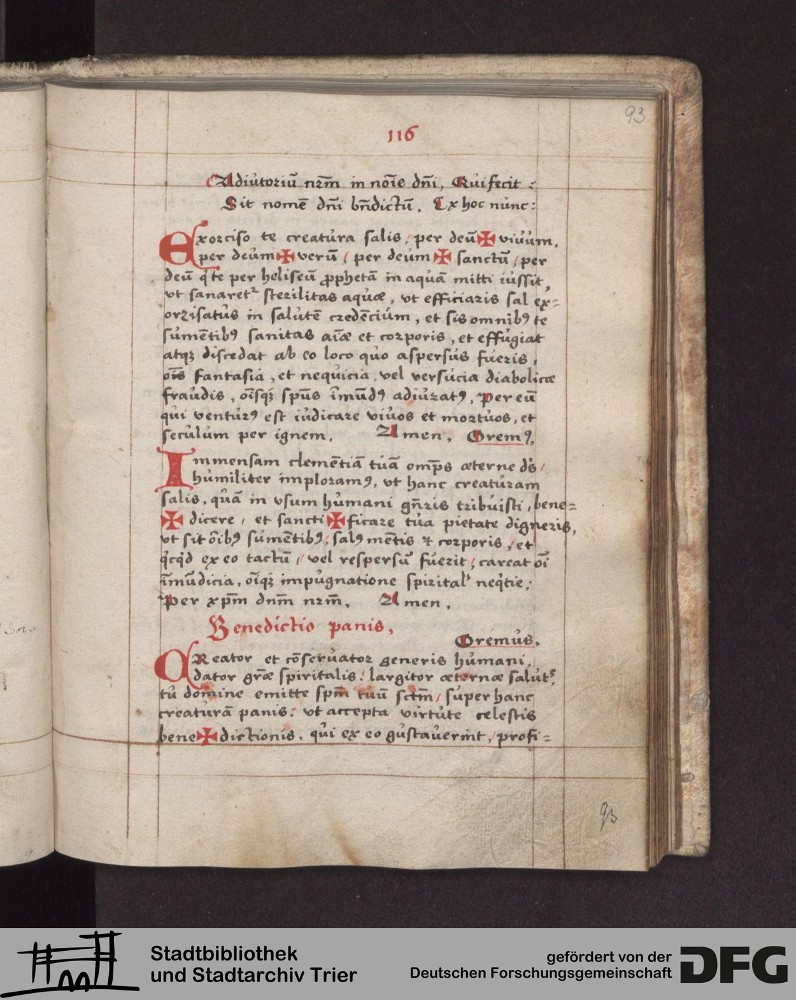 93
116
Adiutoriū nr̄m in noīe dn̄i, Qui fecit :
Sit nomē dn̄i bn̄dictū, Ex hoc nunc:
Exorciso te creatura salis, per deū ✠ viuum,
per deum ✠ verū / per deum ✠ sanctū / per
deū q te per heliseū ꝓphetā in aquā mitti iussit,
vt sanaret᷑ sterilitas aquæ, vt efficiaris sal ex-
orzisatus in salutē credēcium, et sis omnibꝰ te
sumētibꝰ sanitas aīæ et corporis, et effugiat
atqꝫ discedat ab eo loco quo aspersus fueris,
oīs fantasia, et nequicia, vel versucia diabolicæ
fraudis, oīsqꝫ sp̄us īmūdꝰ adiuratꝰ, per eū
qui venturꝰ est iudicare viuos et mortuos, et
seculum per ignem, Amen, Oremꝰ,
Immensam clemētiā tuā omp̄s æterne ds̄ /
humiliter imploramꝰ, vt hanc creaturam
salis, quā in vsum humani gn̄ris tribuisti, bene-
✠ dicere, et sancti ✠ ficare tua pietate digneris,
vt sit oībꝰ sumētibꝰ, salꝰ mētis ⁊ corporis, et
qcqd ex eo tactū, vel respersū fuerit, careat oī
īmūdicia, oīqꝫ impugnatione spirital' neqtie;
Per xp̄m dnm nr̄m, Amen,
Benedictio panis,
Oremus,
CReator et cōseruator generis humani,
dator græ spiritalis: largitor æternæ salut᷑,
tu domine emitte sp̄m tuū sctm̄ / super hanc
creaturā panis: vt accepta virtute celestis
bene ✠ dictionis, qui ex eo gustauerīnt, profi-
93
Stadtbibliothek
und Stadtarchiv Trier
gefördert von der
Deutschen Forschungsgemeinschaft
DFG